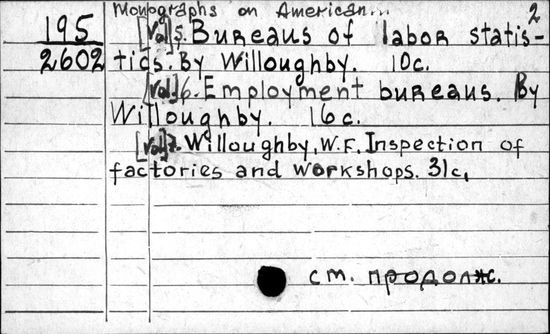 Monographs on American...
2
195
2602
[Vol.]5. Bureaus of labor statis-
tics. By Willoughby. 10c.
[Vol.]6. Employment bureaus. By
Willoughby. 16c.
[Vol.]7. Willoughby, W.F. Inspection of
factories and workshops. 31c.
см. продолж.